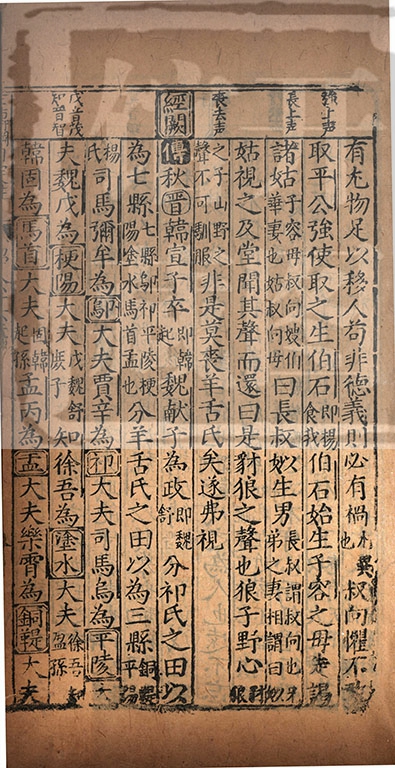 強上声
長上声
喪去声
戊音茂
知音智
有尤物足以移人苟非德義則必有禍尤異也叔向懼不敢
取平公強使取之生伯石即楊食我伯石始生子容之母走謁
諸姑子容母叔向嫂伯華妻也姑叔向母曰長叔姒生男長叔謂叔向也兄弟之妻相謂曰姒
姑視之及堂聞其聲而還曰是豺狼之聲也狼子野心豺狼
之子山野之聲不可馴服非是莫喪羊舌氏矣遂弗視
經闕傳秋晉韓宣子卒即韓起魏献子為政即魏舒分祁氏之田以
為七縣七縣鄔祁平陵梗陽塗水馬首盂也分羊舌氏之田以為三縣銅鞮平陽
楊氏司馬彌牟為鄔大夫賈辛為祁大夫司馬烏為平陵大
夫魏戊為梗陽大夫戊魏舒庶子知徐吾為塗水大夫徐吾知盈孫
韓固為馬首大夫固韓起孫孟丙為盂大夫樂霄為銅鞮大夫